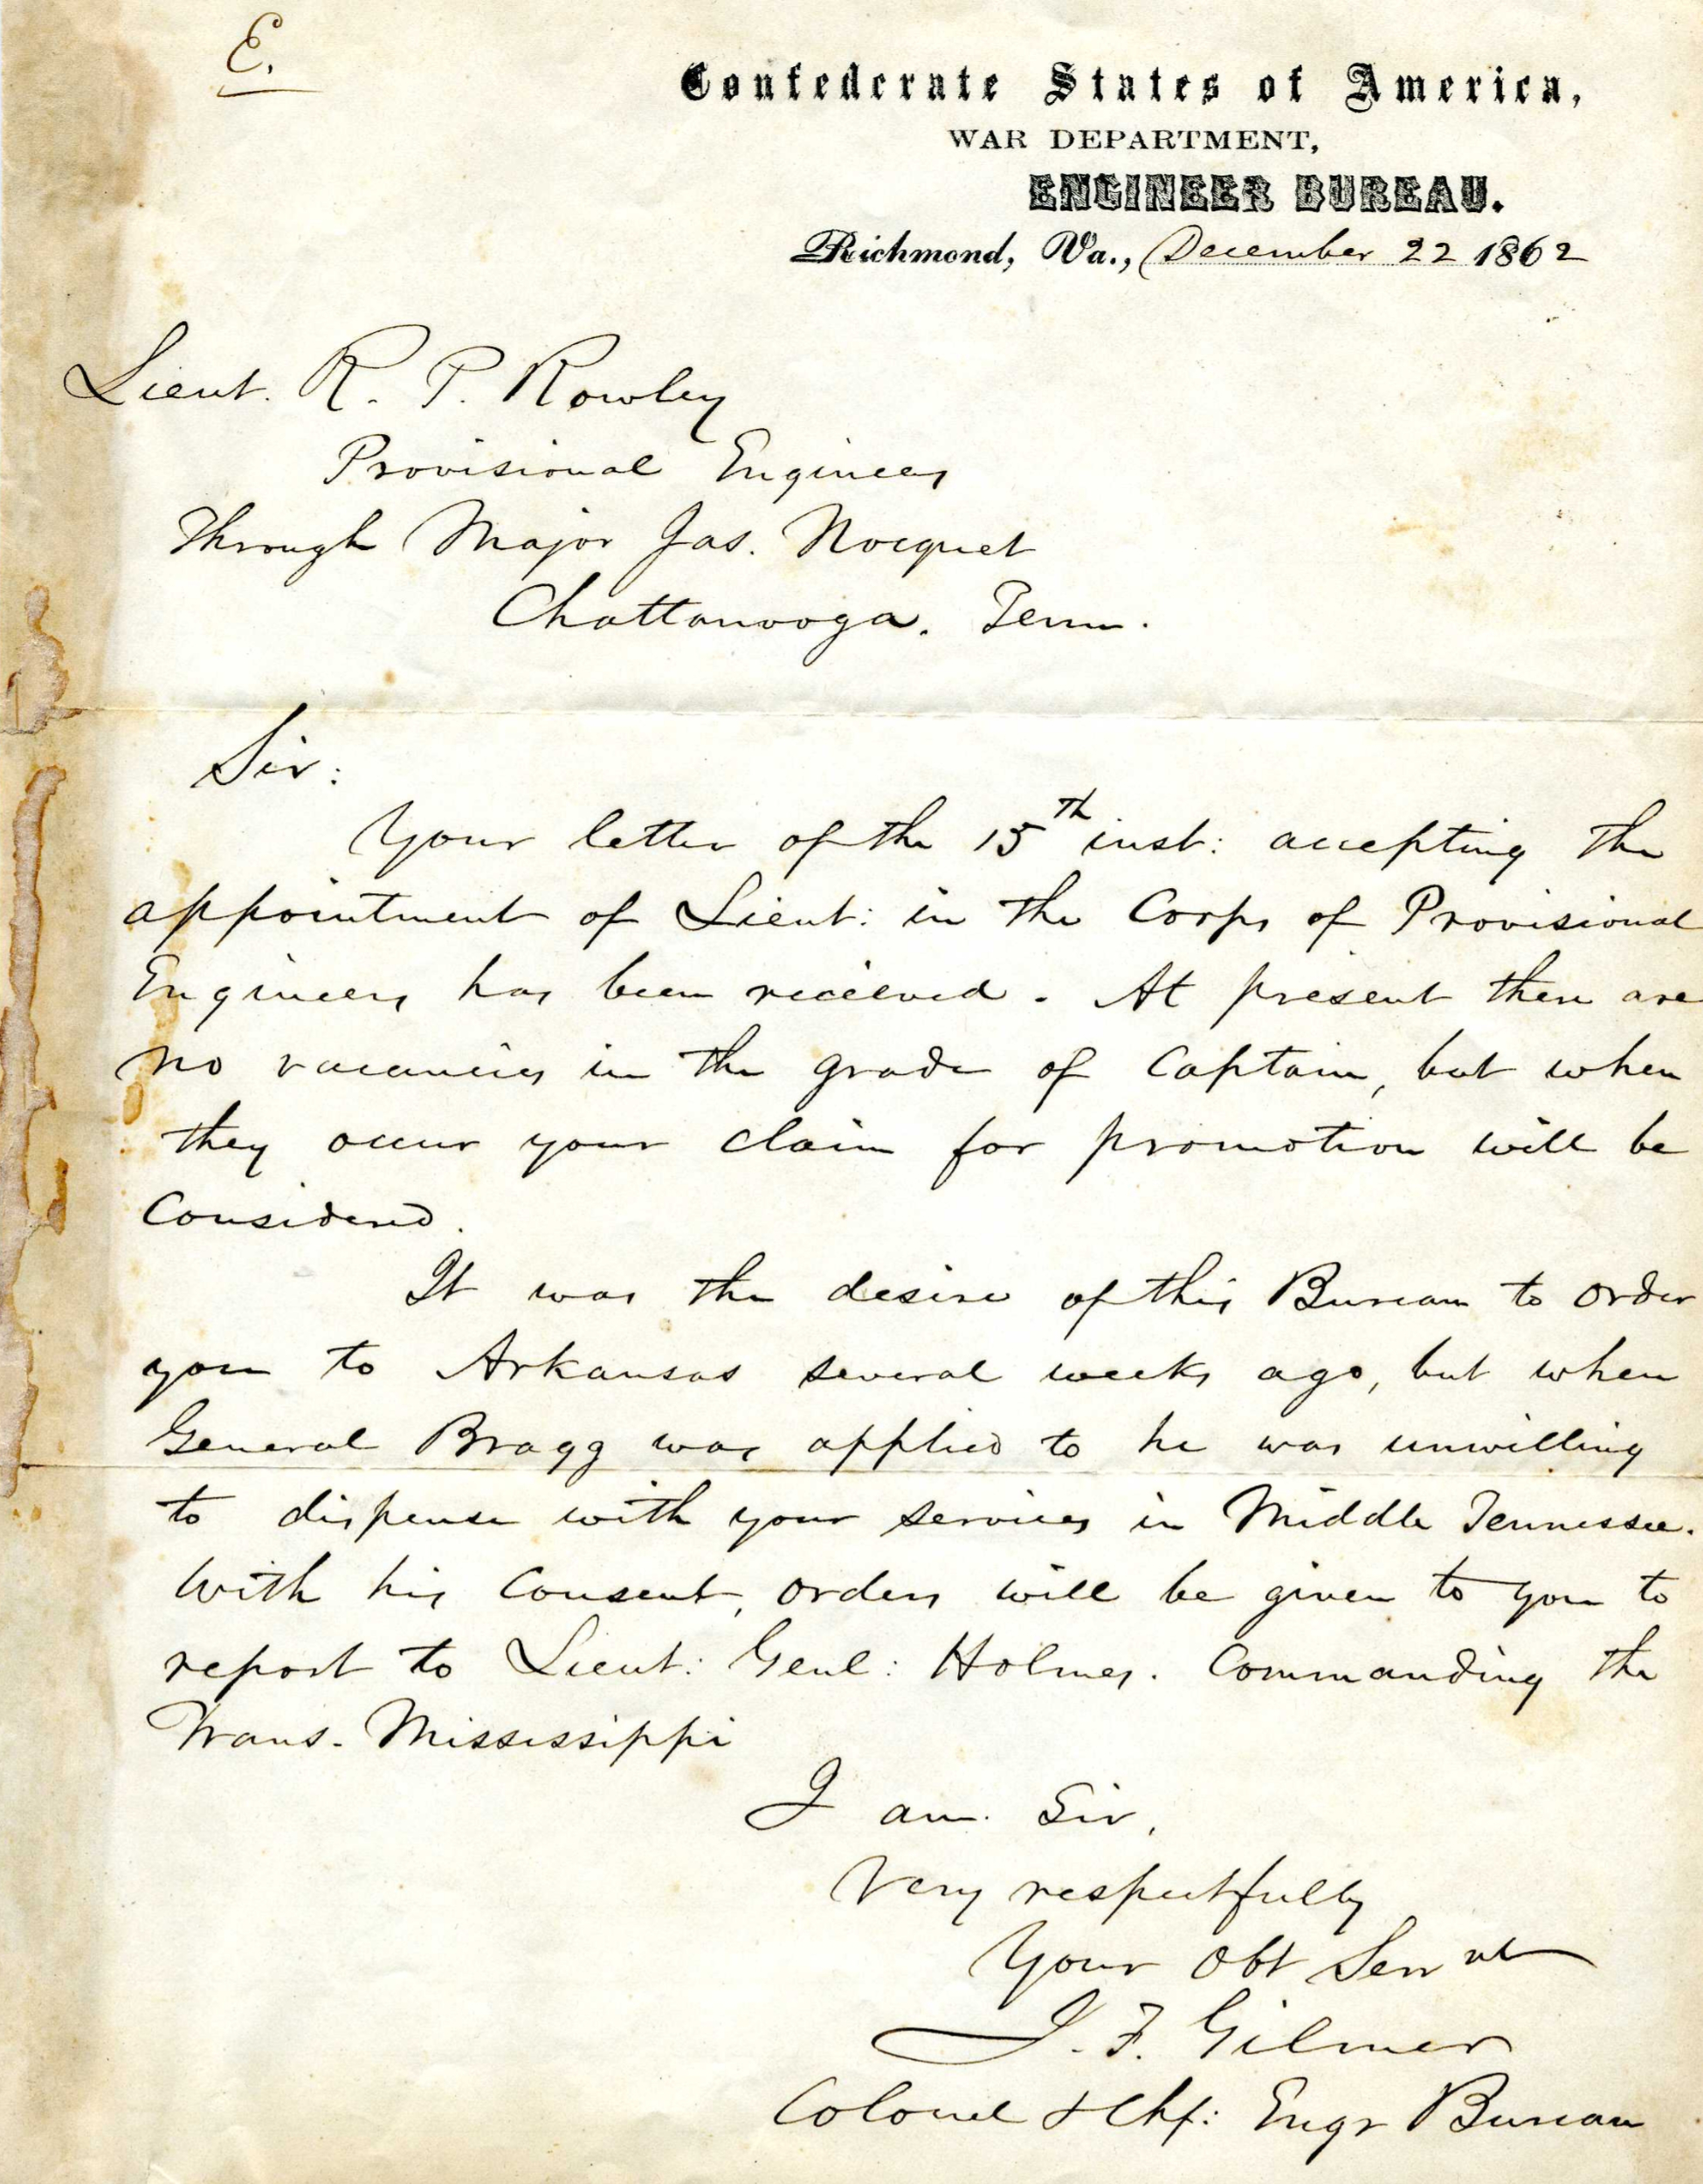 E.
Confederate States of America,
WAR DEPARTMENT,
ENGINEER BUREAU.
Richmond, Va., December 22 1862
Lieut. R. P. Rowley
Provisional Engineers
Through Major Jas. Nocquet
Chattanooga. Tenn.
Sir:
Your letter of the 15th inst: accepting the
appointment of Lieut: in the Corps of Provisional
Engineers has been received. At present there are
no vacancies in the grade of Captain, but when
they occur your claim for promotion will be
Considered.
It was the desire of this Bureau to order
you to Arkansas several weeks ago, but when
General Bragg was applied to he was unwilling
to dispense with your services in Middle Tennessee.
With his Consent, orders will be given to you to
report to Lieut: Genl: Holmes. Commanding the
Trans-Mississippi
I am. Sir,
Very respectfully
Your Obt Servnt
J. F. Gilmer
Colonel & Chf: Engr Bureau